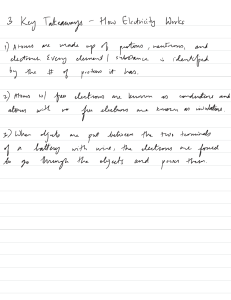 3 Key Takeaways - How Electricity Works
1) Atoms are made up of protons, neutrons, and
electrons. Every element / substance is identified
by the # of protons it has.
2) Atoms w/ free electrons are known as conductors and
atoms with no free electrons are known as insulators.
3) When objects are put between the two terminals
of a battery with wire, the electrons are forced
to go through the objects and power them.